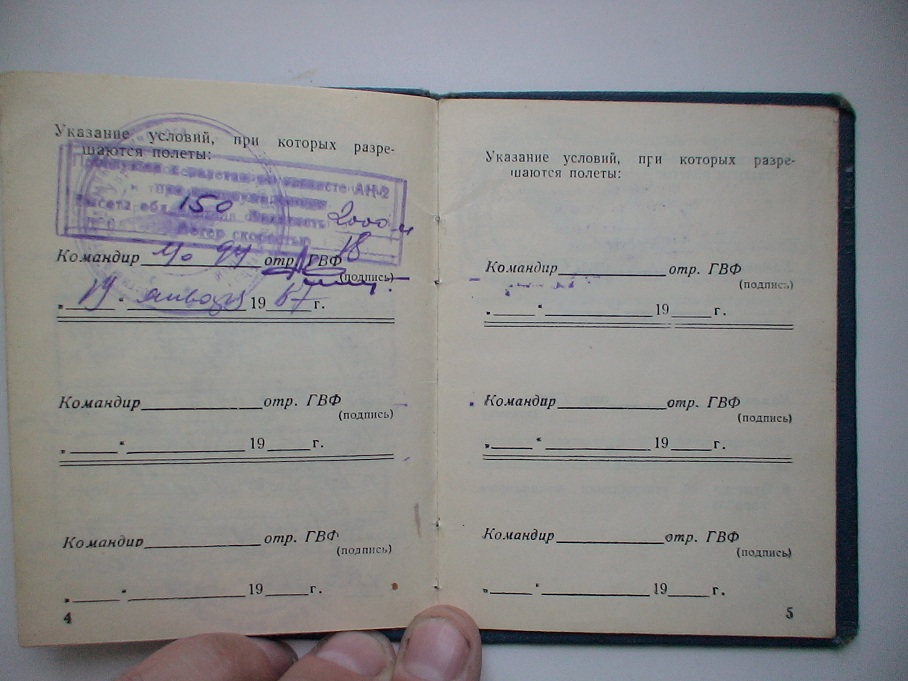 Указание условий, при которых разре-
шаются полеты:
на самолете АН-2
150
Высота 2000 м
ветер скоростью 18
Командир отр. ГВФ
(подпись)
„19“ января 1967 г.
Командир отр. ГВФ
(подпись)
„ “ 19 г.
Командир отр. ГВФ
(подпись)
„ “ 19 г.
4
Указание условий, при которых разре-
шаются полеты:
Командир отр. ГВФ
(подпись)
„ “ 19 г.
Командир отр. ГВФ
(подпись)
„ “ 19 г.
Командир отр. ГВФ
(подпись)
„ “ 19 г.
5